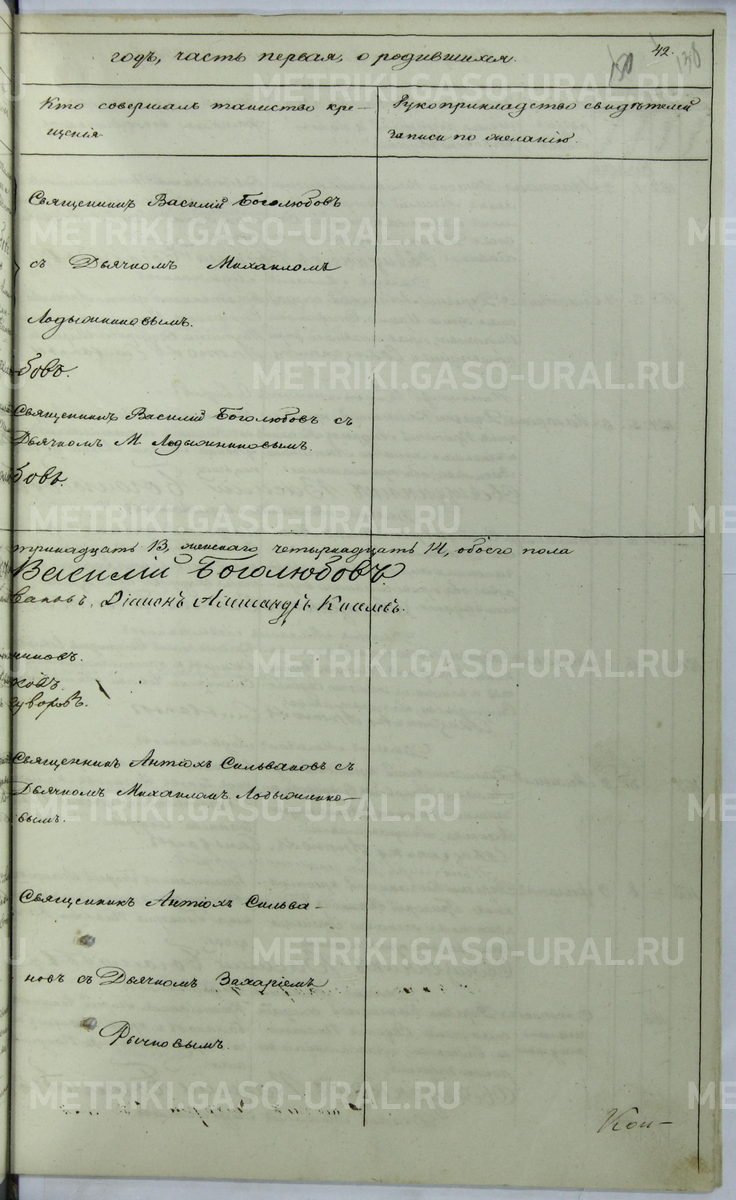 годъ, часть первая, о родившихся.
42.
Кто совершалъ таинство кре-
щенія
Рукоприкладство свидѣтелей
записи по желанію.
Священникъ Василій Боголюбовъ
съ Дьячкомъ Михаиломъ
Лодыжниковымъ.
бовъ.
Священникъ Василій Боголюбовъ съ
Дьячкомъ М. Лодыжниковымъ.
бовъ.
тринадцать 13, женскаго четырнадцать 14, обоего пола
Василій Боголюбовъ.
вановъ, Діаконъ Александръ Киселевъ.
никовъ.
кой
уворовъ.
Священникъ Антіохъ Сильвановъ съ
Дьячкомъ Михаиломъ Лодыжнико-
вымъ.
Священникъ Антіохъ Сильва-
новъ съ Дьячкомъ Захаріемъ
Рычковымъ.
Кон-
METRIKI.GASO-URAL.RU